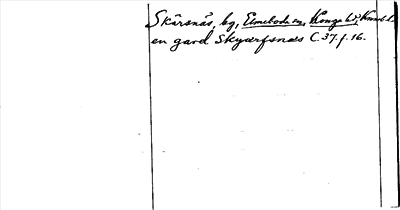 Skärsnäs, by, Elmeboda sn, Konga hd, Kronob. l.
en gard Skyærfsnæs C. 37. f. 16.